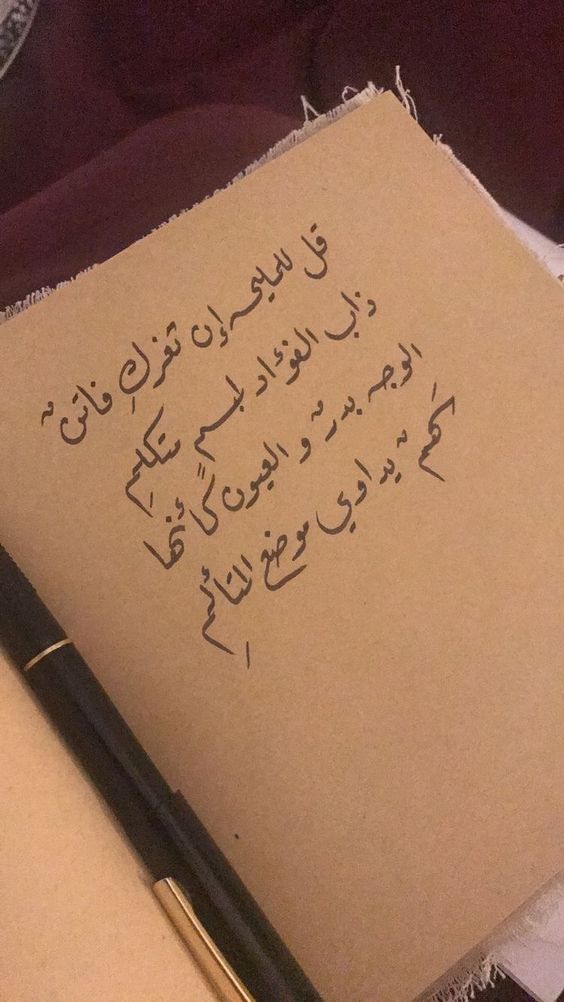 قل للمليحه إن ثغركِ فاتنٌ
ذاب الفؤاد لمبسمٍ متكلمِ
الوجه بدرٌ و العيون كأنها
سَهمٌ يداوي موضع المتألمِ